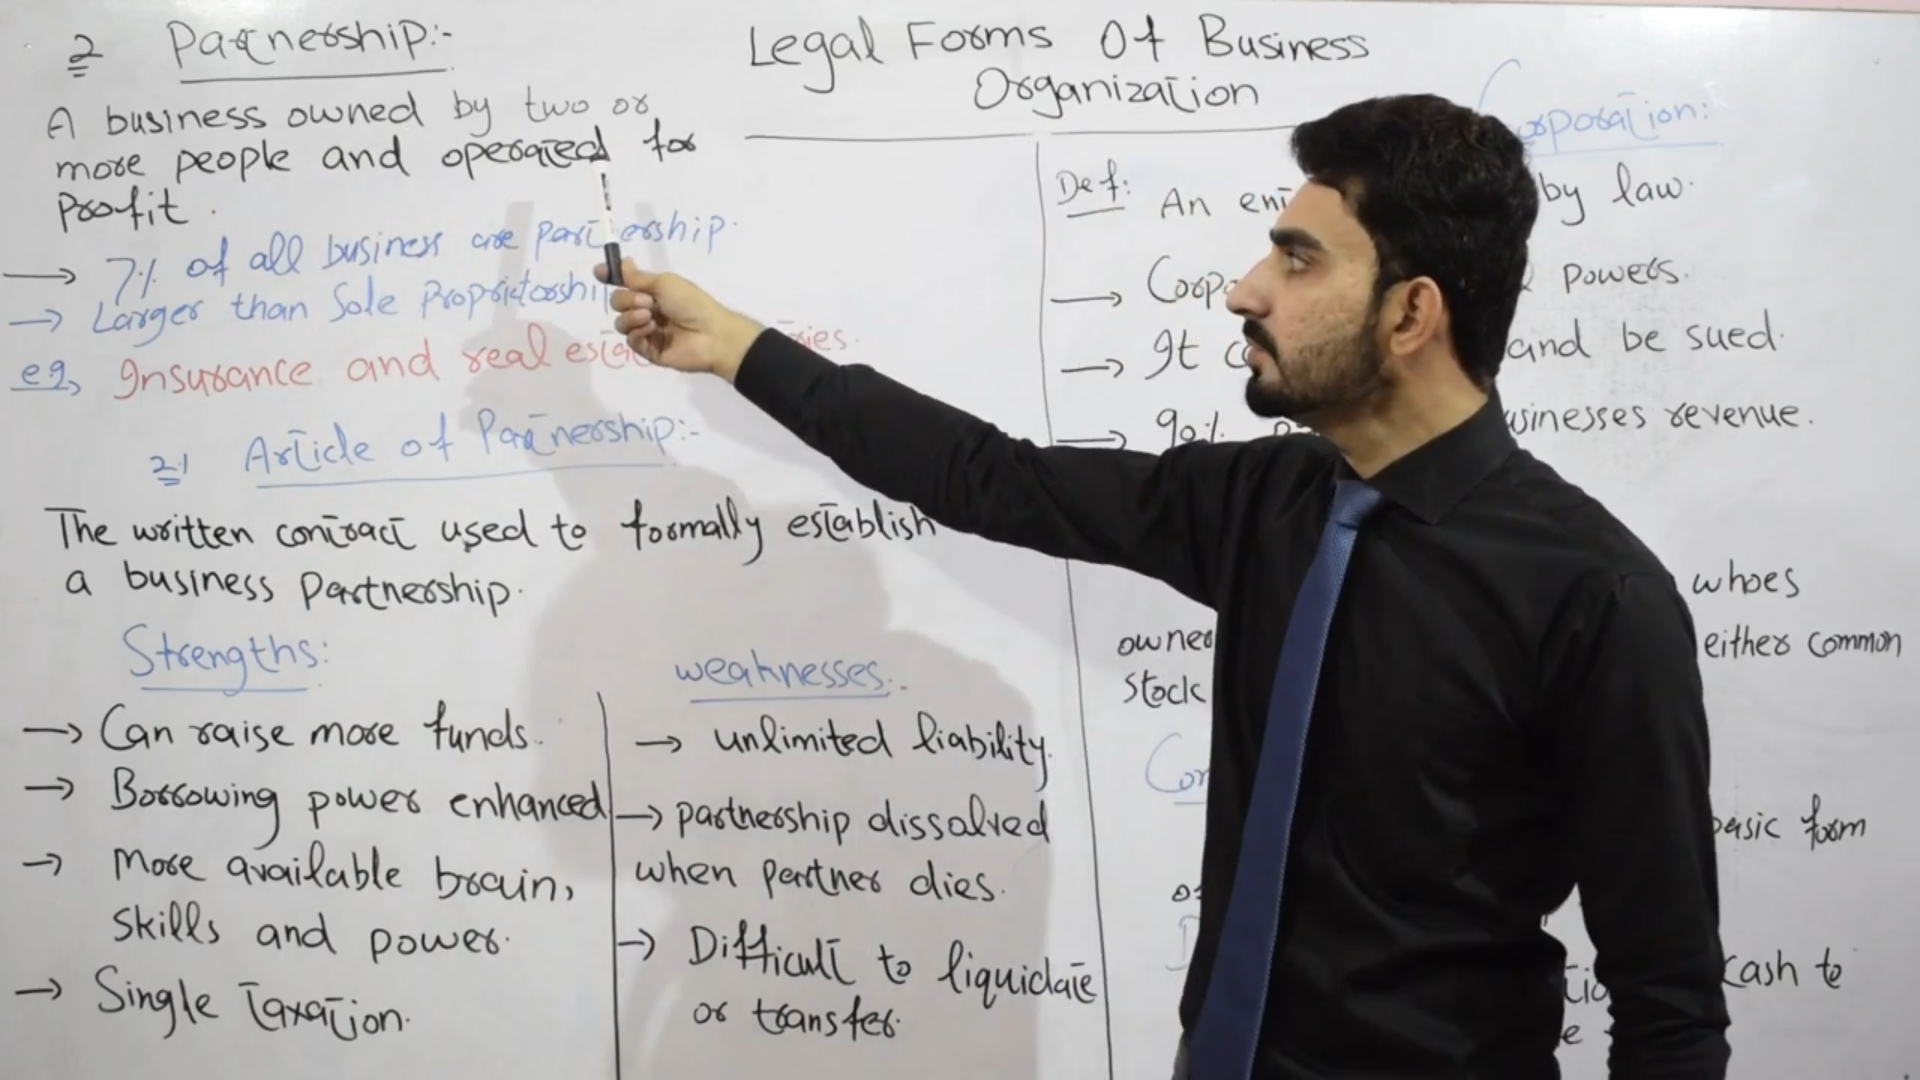 Legal Forms Of Business
Organization
2 Partnership:-
A business owned by two or
more people and operated for
Profit.
→ 7% of all business are partnership.
→ Larger than Sole Proprietorship
eg, Insurance and real estate
2.1 Article of Partnership:-
The written contract used to formally establish
a business Partnership.
Strengths:
→ Can raise more funds.
→ Borrowing power enhanced
→ More available brain,
skills and power.
→ Single Taxation.
weaknesses.
→ unlimited liability.
→ partnership dissolved
when partner dies.
→ Difficult to liquidate
or transfer.
Corporation:
Def: An by law.
→ powers.
→ It and be sued.
→ 90% businesses revenue.
whoes
either common
stock
basic form
cash to